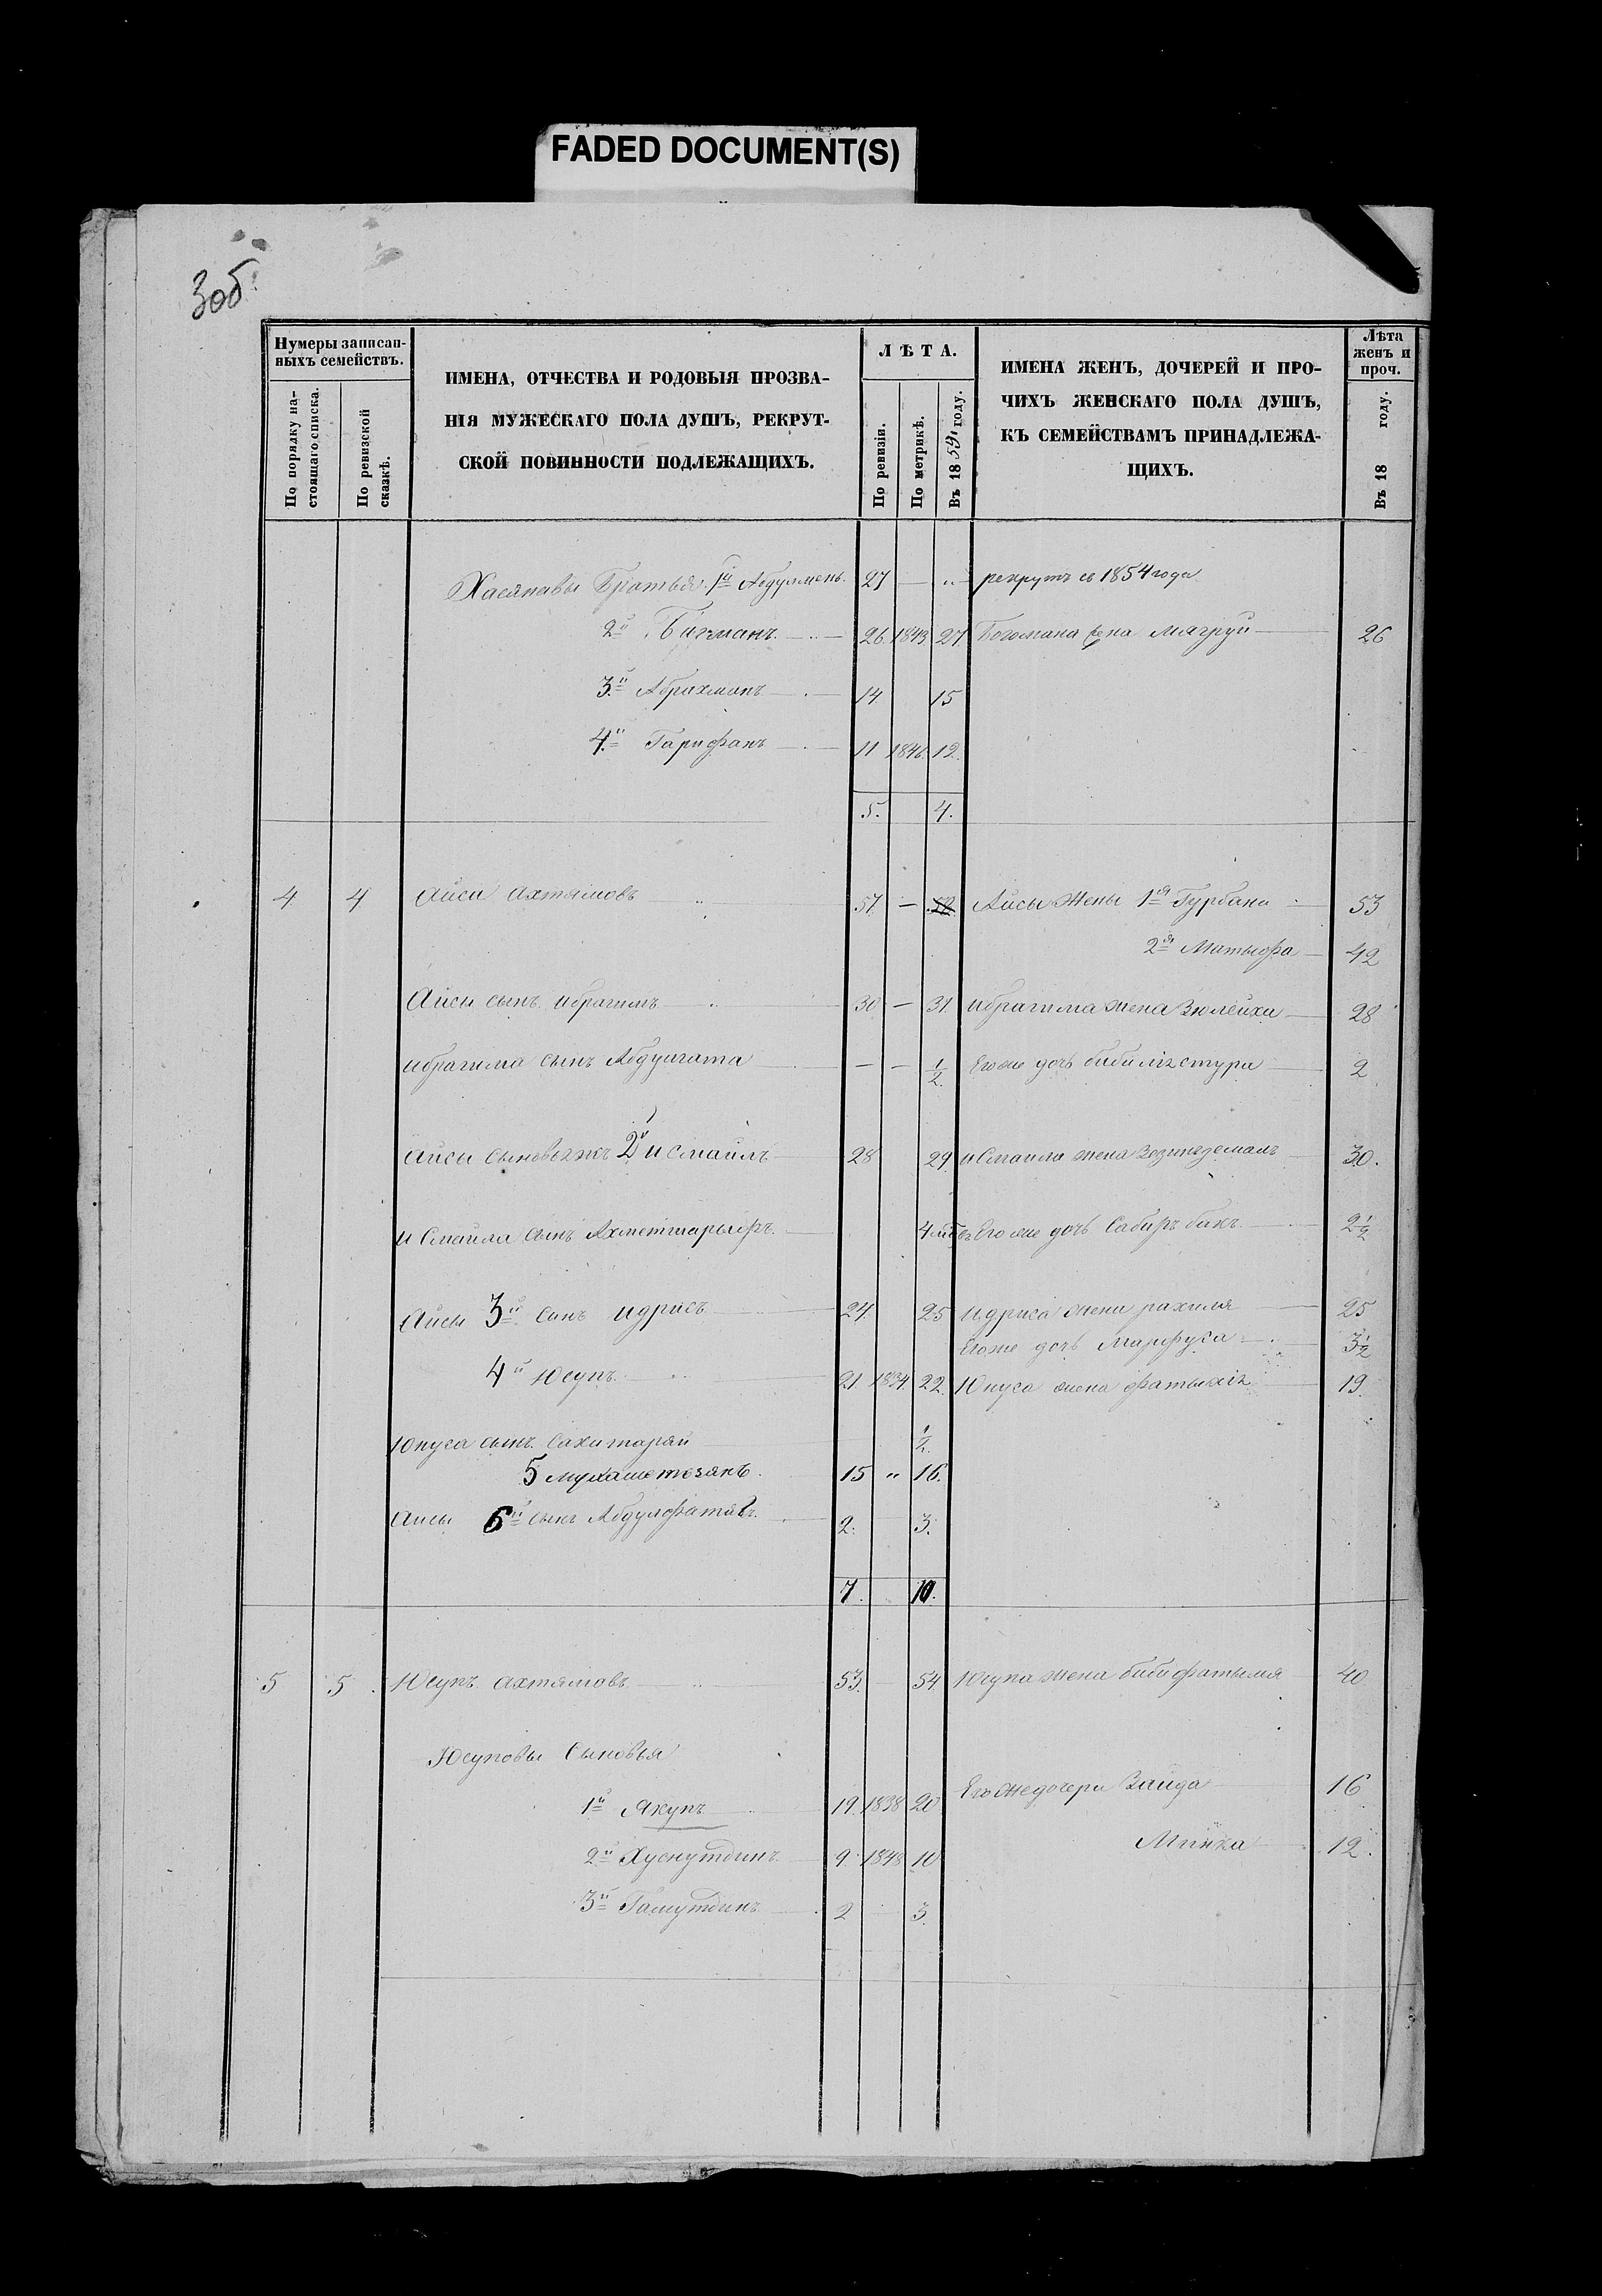 FADED DOCUMENT(S)
3об.
Нумеры записан-
ныхъ семействъ.
По порядку на-
стоящаго списка.
По ревизской
сказкѣ.
ИМЕНА, ОТЧЕСТВА И РОДОВЫЯ ПРОЗВА-
НІЯ МУЖЕСКАГО ПОЛА ДУШЪ, РЕКРУТ-
СКОЙ ПОВИННОСТИ ПОДЛЕЖАЩИХЪ.
ЛѢТА.
По ревизіи.
По метрикѣ.
Въ 1859 году.
ИМЕНА ЖЕНЪ, ДОЧЕРЕЙ И ПРО-
ЧИХЪ ЖЕНСКАГО ПОЛА ДУШЪ,
КЪ СЕМЕЙСТВАМЪ ПРИНАДЛЕЖА-
ЩИХЪ.
Лѣта
женъ и
проч.
Въ 18 году.
Хасяновы Братья 1й 27 — „ рекрутъ съ 1854 года
2й 26 1843 27 жена Мягруй 26
3й Абрахманъ 14 15
4й Гарифанъ 11 1846 12.
5. 4.
4 4 Айса Ахтямовъ 57 — Айсы Жены 1я Гурбана 53
2я Матыфа 42
Айсы сынъ Ибрагимъ 30 — 31. Ибрагима жена Зюлейха 28
Ибрагима сынъ — — 1/2 Его же дочь 2
Айсы сыновья 2й Исмаилъ 28 29 Исмаила жена 30.
Исмаила сынъ Ахметшарыфъ 4 Его же дочь Сабиръ бикъ 2 1/2
Айсы 3й сынъ Идрисъ 24. 25 Идриса жена рахиля 25
Его же дочь Марфуса 3 1/2
4й Юсупъ 21. 1834. 22. Юнуса жена 19.
Юнуса сынъ Сахигарай 1/2
5 Мухаметзянъ. 15 „ 16.
Айсы 6й сынъ Абдулфатихъ. 2. 3.
7. 10.
5 5. Юсупъ Ахтямовъ 53. 54 Юсупа жена бибифатыма 40
Юсуповы Сыновья
1й Якупъ 19. 1838 20 Его же дочери Заида 16
2й Хуснутдинъ 9. 1848 10 Минка 12.
3й 2 3.